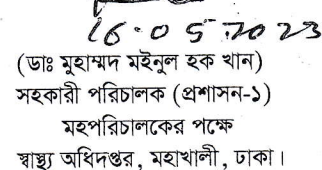 16.05.2023
(ডাঃ মুহাম্মদ মইনুল হক খান)
সহকারী পরিচালক (প্রশাসন-১)
মহপরিচালকের পক্ষে
স্বাস্থ্য অধিদপ্তর, মহাখালী, ঢাকা।